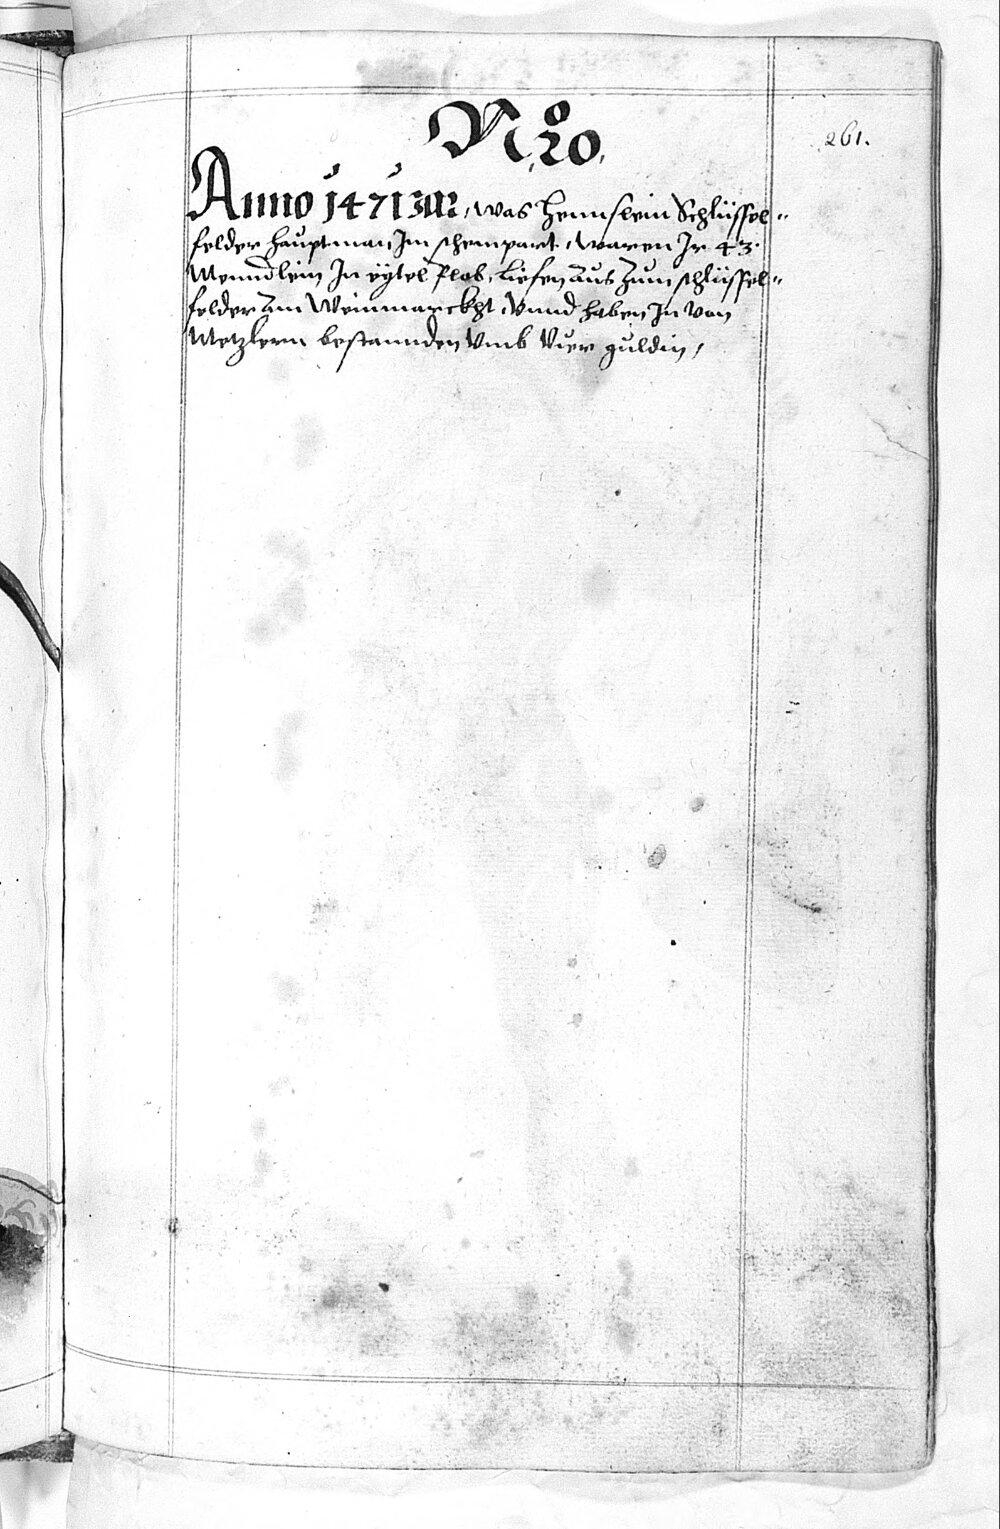 No 20,
261.
Anno 1471 Jar, was Hennslein Schlüssel-
felder hauptman, Im schempart, waren Jr 43.
Menndlein In eytel Plab, Liefen aus Zum schlüssel-
felder am Weinmarckht, Vnnd haben In von
Metzlern bestannden Vmb Vier guldin,